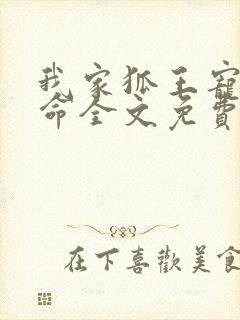 我家狐王寵
命全文免費
在下喜歡美食